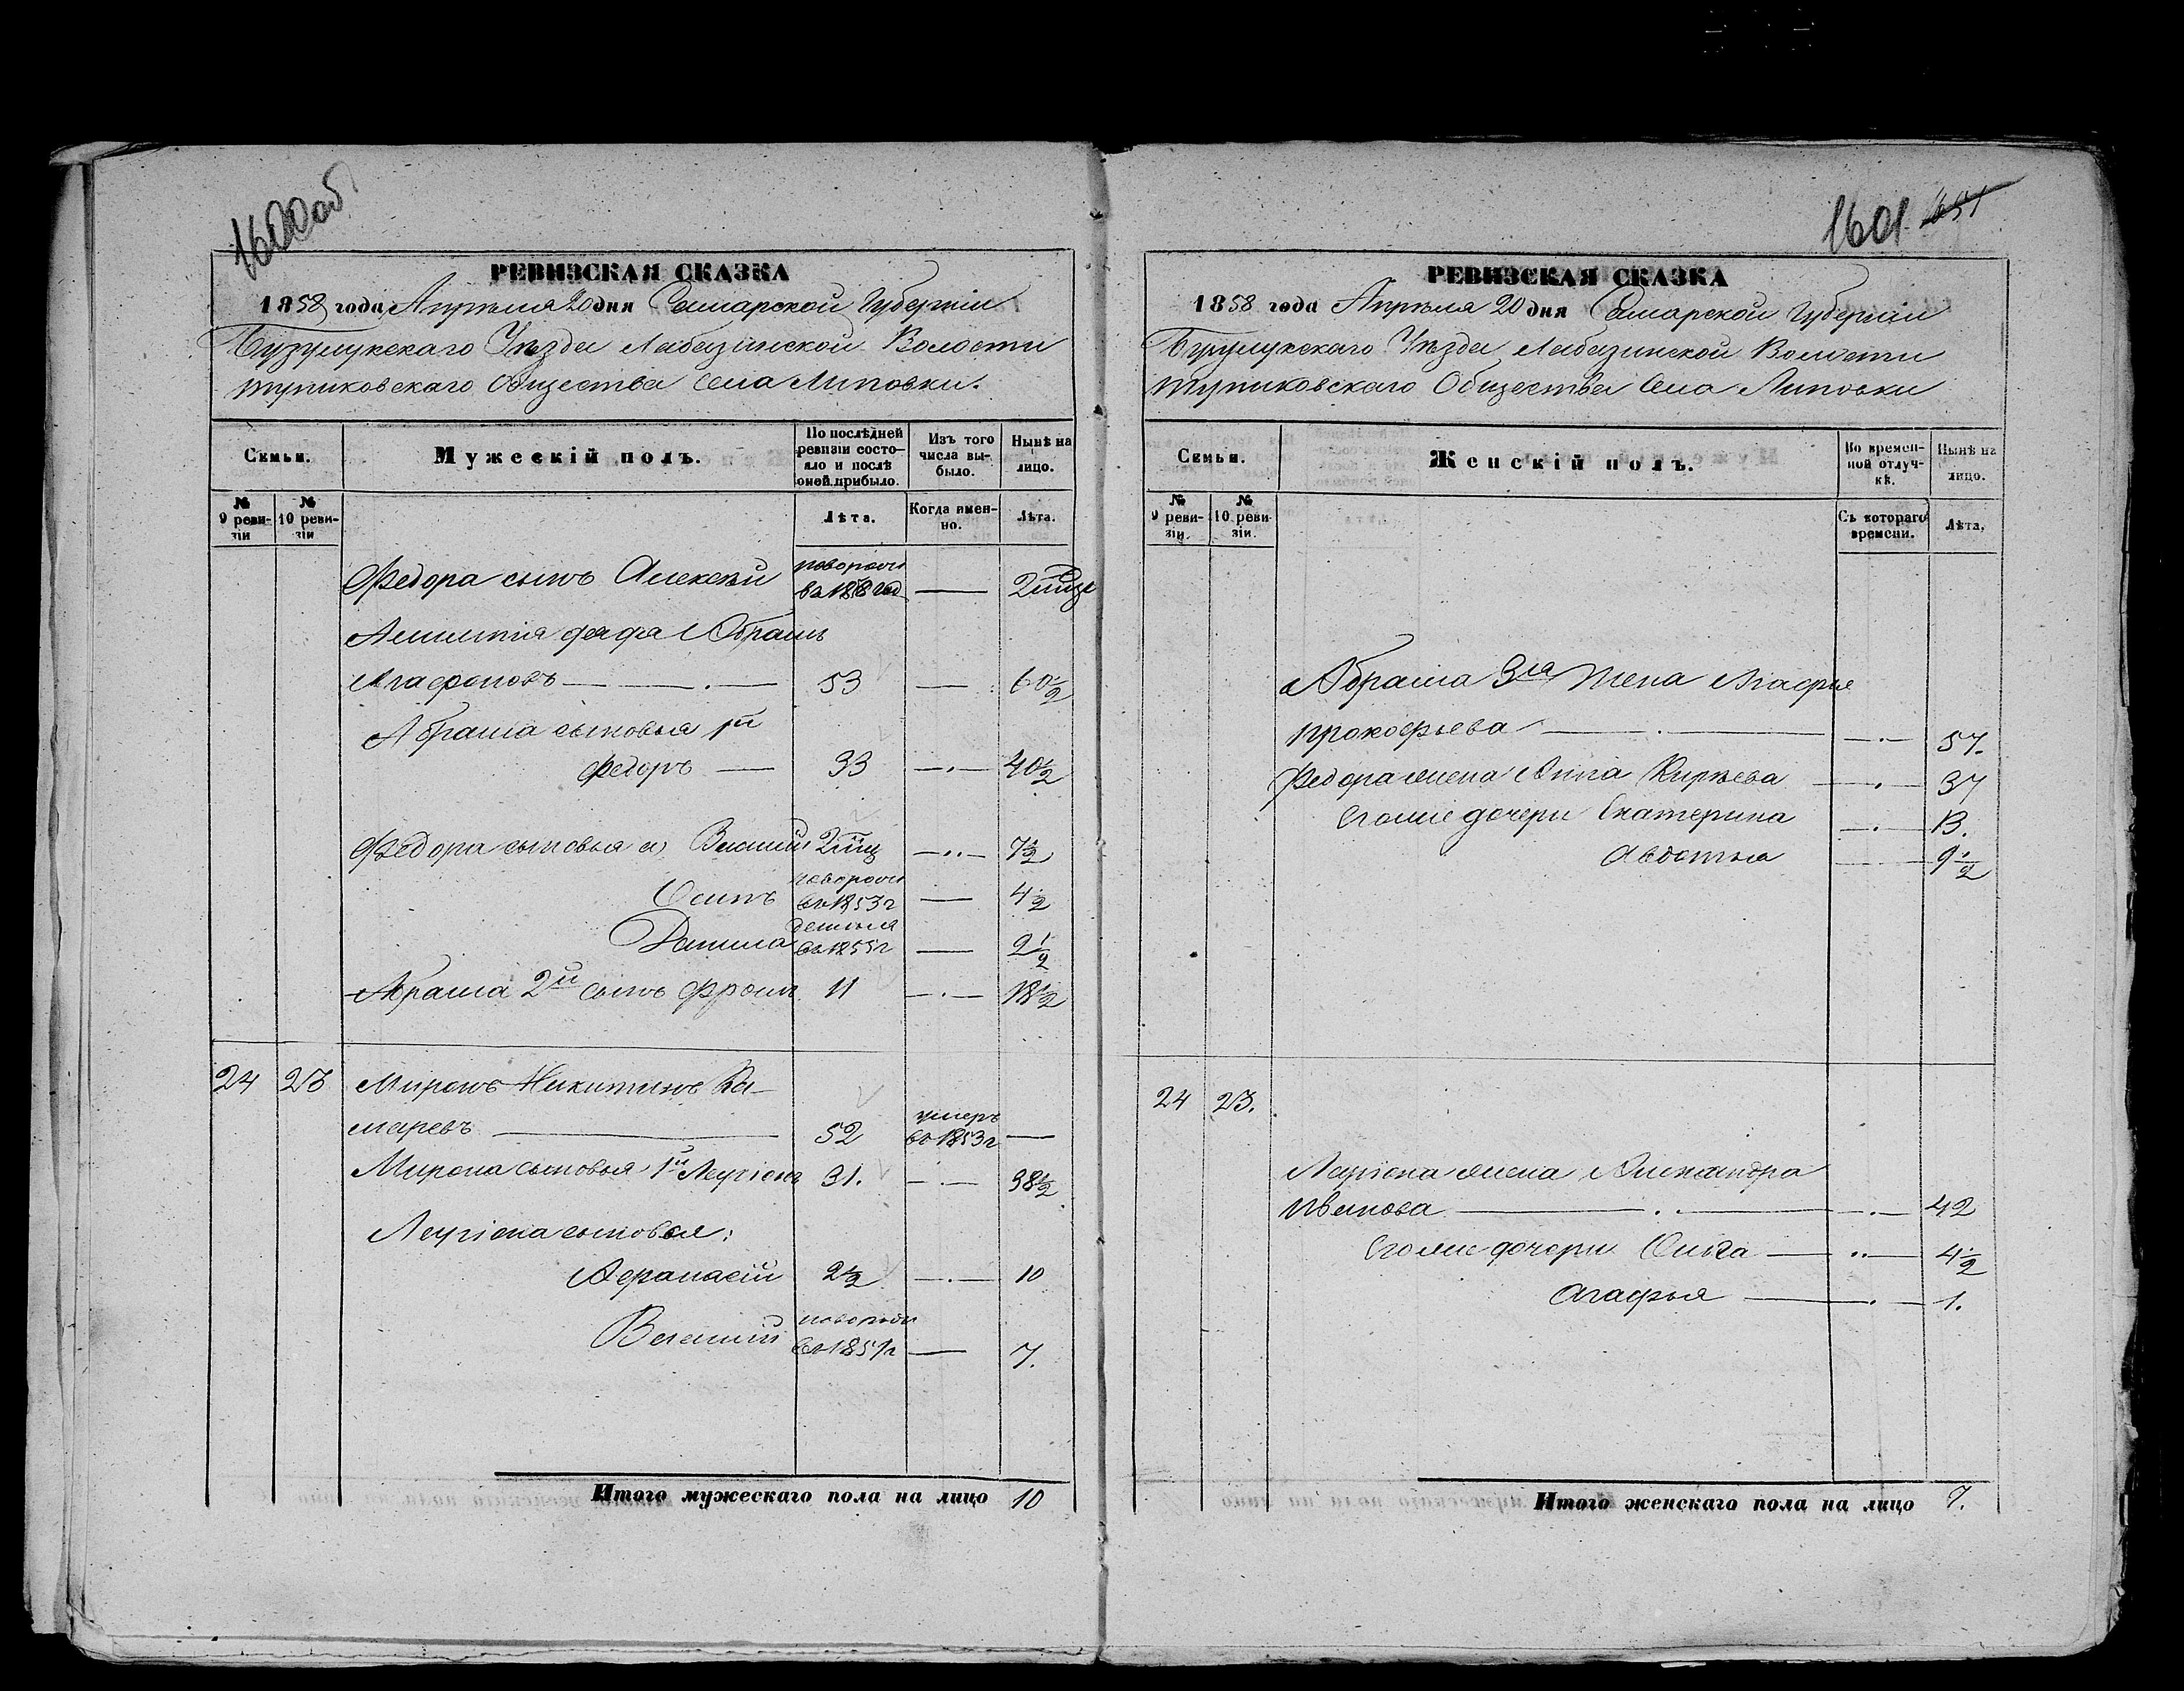 1600об
РЕВИЗСКАЯ СКАЗКА
1858 года Апрѣля 20 дня Самарской Губерніи
Бузулукскаго Уѣзда Лабазинской Волости
тупиковскаго Общества села Липовки.
Семьи.
Мужескій полъ.
По послѣдней ревизіи состояло и послѣ оной прибыло.
Изъ того числа выбыло.
Нынѣ на лицо.
№ 9 ревизіи
№ 10 ревизіи
Лѣта.
Когда именно.
Лѣта.
Федора сынъ Алексѣй новорожд въ 1858 год — 2
дядя Абрамъ
Агафоновъ — 53 — 60½
Абрама сыновья 1й
Федоръ — 33 — 40½
Федора сыновья а, Василій 2 — 7½
Осипъ новорожд въ 1853 г — 4½
Данила въ 1855 г — 2½
Абрама 2й сынъ Фролъ 11 — 18½
24 23 Миронъ Никитинъ Ка-
маревъ — 52 умеръ въ 1853 г —
Мирона сыновья 1й Ларіонъ 31. — 38½
Ларіона сыновья:
Афанасій 2½ — 10
Василій новорожд въ 1851 г — 7.
Итого мужескаго пола на лицо 10
1601 651
РЕВИЗСКАЯ СКАЗКА
1858 года Апрѣля 20 дня Самарской Губерніи
Бузулукскаго Уѣзда Лабазинской Волости
тупиковскаго Общества села Липовки
Семьи.
Женскій полъ.
Во временной отлучкѣ.
Нынѣ на лицо.
№ 9 ревизіи.
№ 10 ревизіи.
Съ котораго времени.
Лѣта,
Абрама 3я жена Агафья
прокофьева — 57.
Федора жена Анна Кирѣева — 37
Егоже дочери Екатерина — 13.
Авдотья — 9½
24 23.
Ларіона жена Александра
Иванова — 42
Егоже дочери Ольга — 4½
Агафья — 1.
Итого женскаго пола на лицо 7.